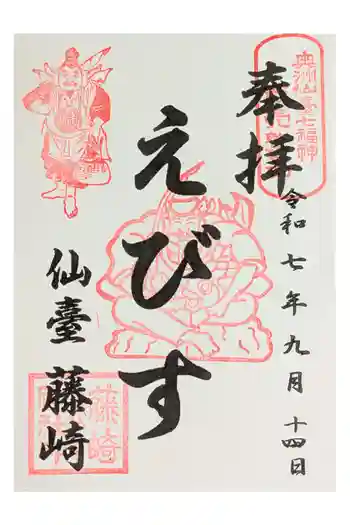 奉拝
奥州仙臺七福神
令和七年九月十四日
えびす
仙臺藤崎
藤崎